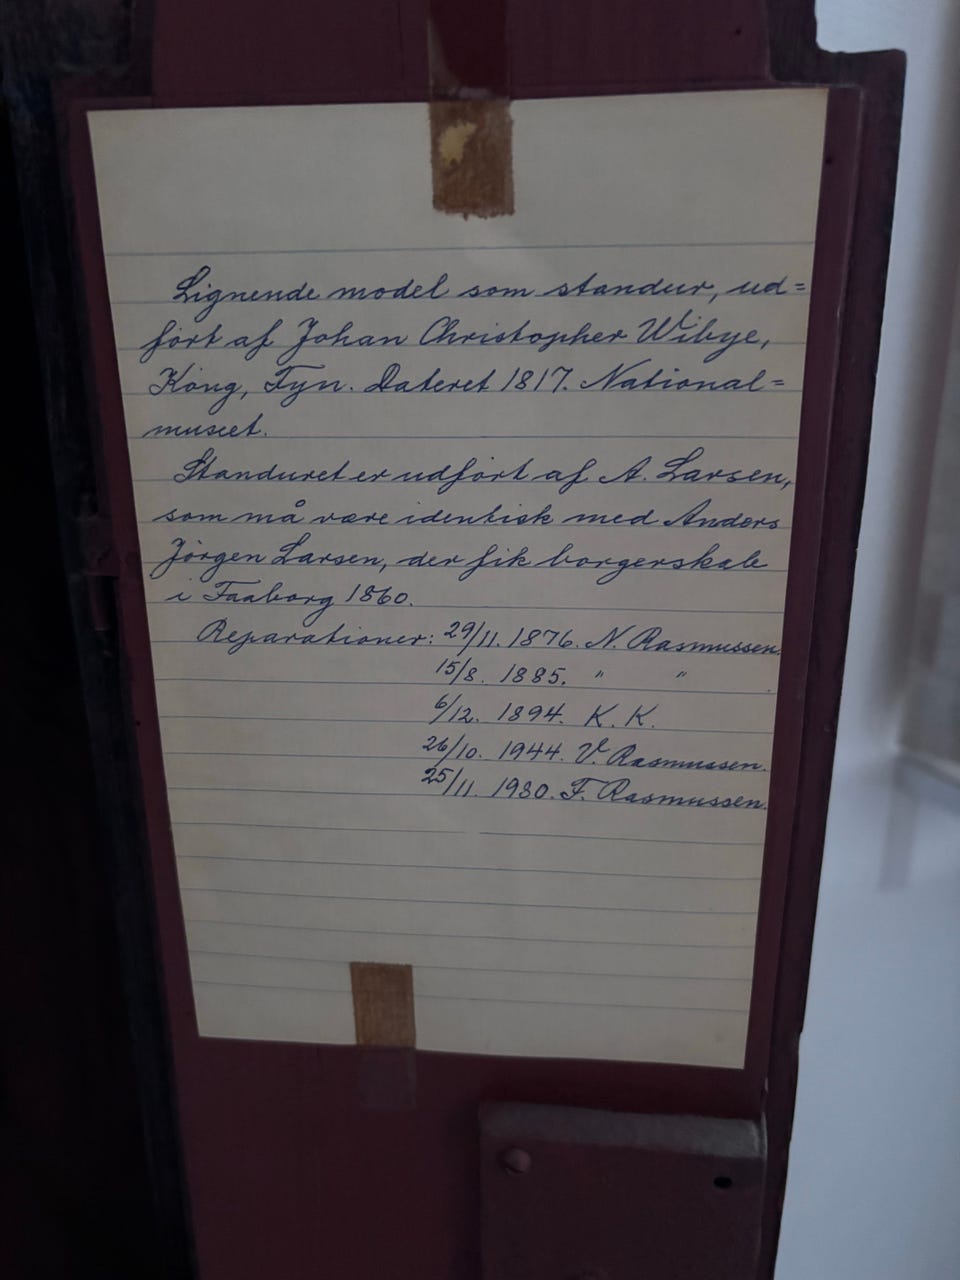 Lignende model som standur, ud=
ført af Johan Christopher Wibye,
Køng, Fyn. Dateret 1817. National=
museet.
Standuret er udført af A. Larsen,
som må være identisk med Anders
Jørgen Larsen, der fik borgerskab
i Faaborg 1860.
Reparationer: 29/11. 1876. N. Rasmussen.
15/8. 1885. " "
6/12. 1894. K. K.
26/10. 1944. V. Rasmussen.
25/11. 1980. F. Rasmussen.